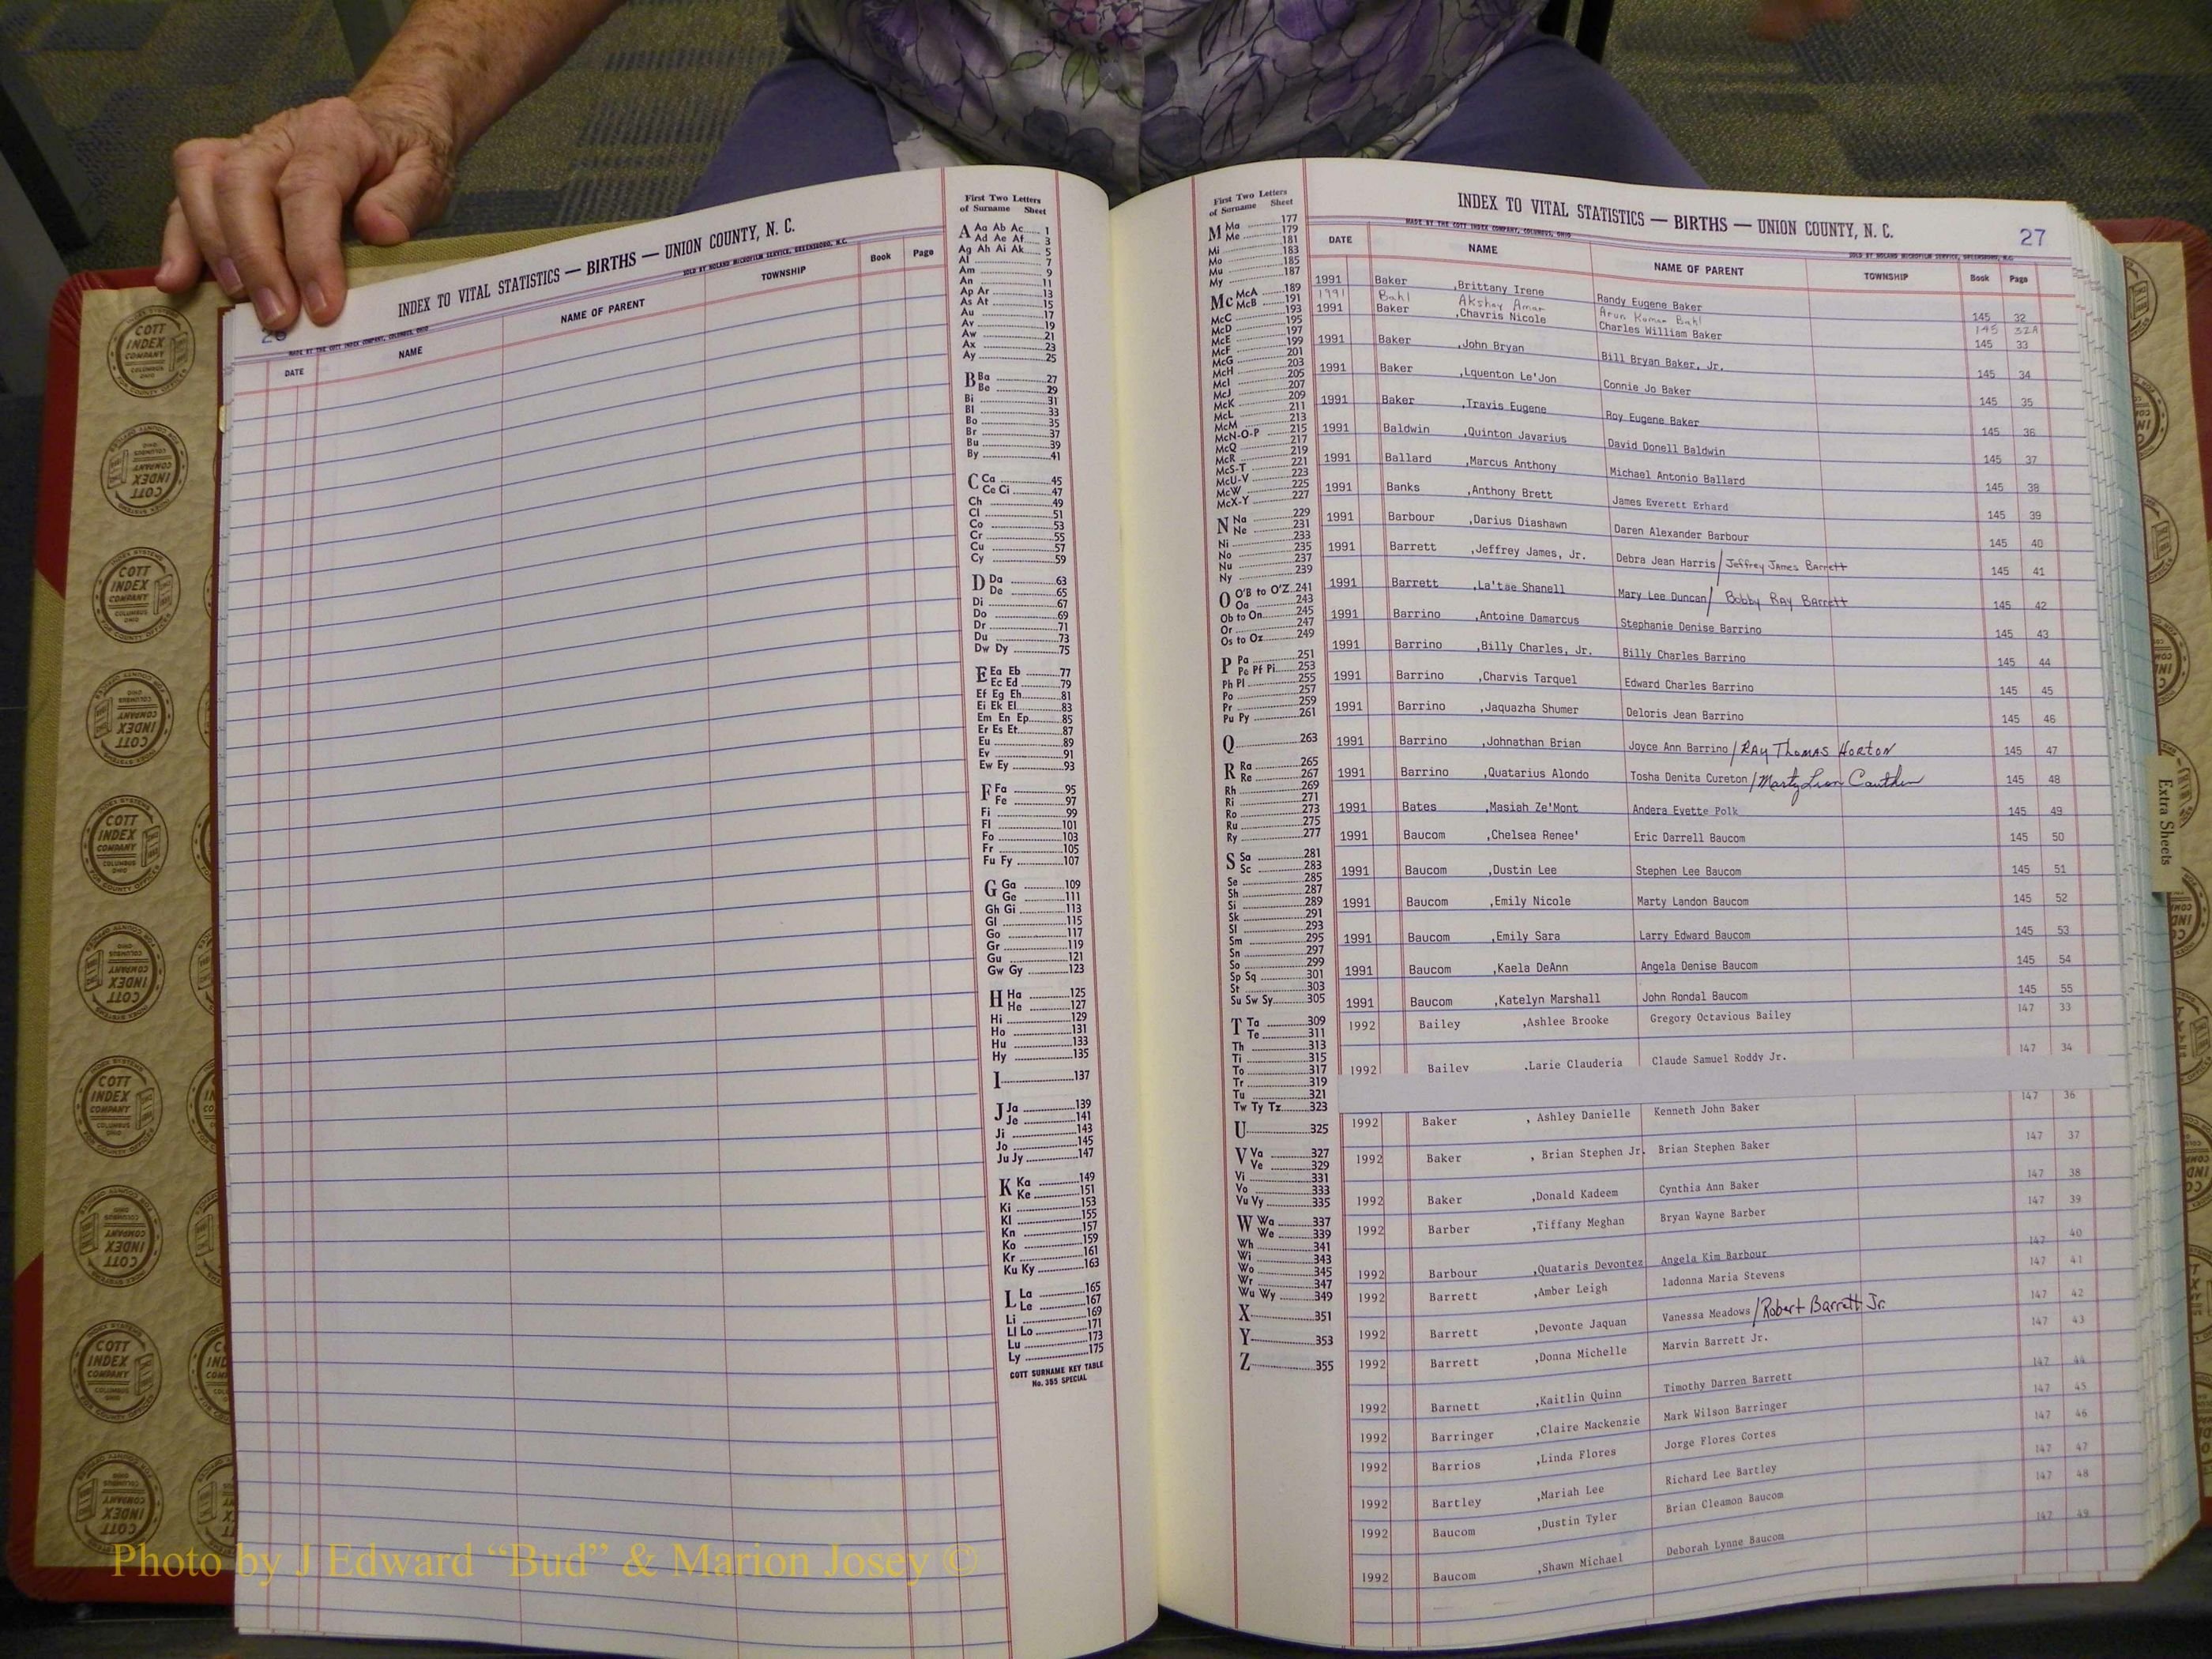 INDEX TO VITAL STATISTICS — BIRTHS — UNION COUNTY, N. C.
MADE BY THE COTT INDEX COMPANY, COLUMBUS, OHIO
SOLD BY NOLAND MICROFILM SERVICE, GREENSBORO, N.C.
DATE NAME NAME OF PARENT TOWNSHIP Book Page
First Two Letters
of Surname Sheet
A Aa Ab Ac 1
Ad Ae Af 3
Ag Ah Ai Ak 5
Al 7
Am 9
An 11
Ap Ar 13
As At 15
Au 17
Av 19
Aw 21
Ax 23
Ay 25
B Ba 27
Be 29
Bi 31
Bl 33
Bo 35
Br 37
Bu 39
By 41
C Ca 45
Ce Ci 47
Ch 49
Cl 51
Co 53
Cr 55
Cu 57
Cy 59
D Da 63
De 65
Di 67
Do 69
Dr 71
Du 73
Dw Dy 75
E Ea Eb 77
Ec Ed 79
Ef Eg Eh 81
Ei Ek El 83
Em En Ep 85
Er Es Et 87
Eu 89
Ev 91
Ew Ey 93
F Fa 95
Fe 97
Fi 99
Fl 101
Fo 103
Fr 105
Fu Fy 107
G Ga 109
Ge 111
Gh Gi 113
Gl 115
Go 117
Gr 119
Gu 121
Gw Gy 123
H Ha 125
He 127
Hi 129
Ho 131
Hu 133
Hy 135
I 137
J Ja 139
Je 141
Ji 143
Jo 145
Ju Jy 147
K Ka 149
Ke 151
Ki 153
Kl 155
Kn 157
Ko 159
Kr 161
Ku Ky 163
L La 165
Le 167
Li 169
Ll Lo 171
Lu 173
Ly 175
COTT SURNAME KEY TABLE
No. 385 SPECIAL
First Two Letters
of Surname Sheet
M Ma 177
Me 179
Mi 181
Mo 183
Mu 185
My 187
Mc McA 189
McB 191
McC 193
McD 195
McE 197
McF 199
McG 201
McH 203
McI 205
McJ 207
McK 209
McL 211
McM 213
McN-O-P 215
McQ 217
McR 219
McS-T 221
McU-V 223
McW 225
McX-Y 227
N Na 229
Ne 231
Ni 233
No 235
Nu 237
Ny 239
O O'B to O'Z 241
Oa 243
Ob to On 245
Or 247
Os to Oz 249
P Pa 251
Pe Pf Pi 253
Ph Pl 255
Po 257
Pr 259
Pu Py 261
Q 263
R Ra 265
Re 267
Rh 269
Ri 271
Ro 273
Ru 275
Ry 277
S Sa 281
Sc 283
Se 285
Sh 287
Si 289
Sk 291
Sl 293
Sm 295
Sn 297
So 299
Sp Sq 301
St 303
Su Sw Sy 305
T Ta 309
Te 311
Th 313
Ti 315
To 317
Tr 319
Tu 321
Tw Ty Tz 323
U 325
V Va 327
Ve 329
Vi 331
Vo 333
Vu Vy 335
W Wa 337
We 339
Wh 341
Wi 343
Wo 345
Wr 347
Wu Wy 349
X 351
Y 353
Z 355
INDEX TO VITAL STATISTICS — BIRTHS — UNION COUNTY, N. C. 27
MADE BY THE COTT INDEX COMPANY, COLUMBUS, OHIO
SOLD BY NOLAND MICROFILM SERVICE, GREENSBORO, N.C.
DATE NAME NAME OF PARENT TOWNSHIP Book Page
1991 Baker ,Brittany Irene Randy Eugene Baker 145 32
1991 Bahl Akshay Amar Arun Kumar Bahl 145 32A
1991 Baker ,Chavris Nicole Charles William Baker 145 33
1991 Baker ,John Bryan Bill Bryan Baker, Jr. 145 34
1991 Baker ,Lquenton Le'Jon Connie Jo Baker 145 35
1991 Baker ,Travis Eugene Roy Eugene Baker 145 36
1991 Baldwin ,Quinton Javarius David Donell Baldwin 145 37
1991 Ballard ,Marcus Anthony Michael Antonio Ballard 145 38
1991 Banks ,Anthony Brett James Everett Erhard 145 39
1991 Barbour ,Darius Diashawn Daren Alexander Barbour 145 40
1991 Barrett ,Jeffrey James, Jr. Debra Jean Harris / Jeffrey James Barrett 145 41
1991 Barrett ,La'tae Shanell Mary Lee Duncan / Bobby Ray Barrett 145 42
1991 Barrino ,Antoine Damarcus Stephanie Denise Barrino 145 43
1991 Barrino ,Billy Charles, Jr. Billy Charles Barrino 145 44
1991 Barrino ,Charvis Tarquel Edward Charles Barrino 145 45
1991 Barrino ,Jaquazha Shumer Deloris Jean Barrino 145 46
1991 Barrino ,Johnathan Brian Joyce Ann Barrino / RAY Thomas Horton 145 47
1991 Barrino ,Quatarius Alondo Tosha Denita Cureton / Marty Leon Cauthen 145 48
1991 Bates ,Masiah Ze'Mont Andera Evette Polk 145 49
1991 Baucom ,Chelsea Renee' Eric Darrell Baucom 145 50
1991 Baucom ,Dustin Lee Stephen Lee Baucom 145 51
1991 Baucom ,Emily Nicole Marty Landon Baucom 145 52
1991 Baucom ,Emily Sara Larry Edward Baucom 145 53
1991 Baucom ,Kaela DeAnn Angela Denise Baucom 145 54
1991 Baucom ,Katelyn Marshall John Rondal Baucom 145 55
1992 Bailey ,Ashlee Brooke Gregory Octavious Bailey 147 33
1992 Bailey ,Larie Clauderia Claude Samuel Roddy Jr. 147 34
1992 Baker , Ashley Danielle Kenneth John Baker 147 36
1992 Baker , Brian Stephen Jr. Brian Stephen Baker 147 37
1992 Baker ,Donald Kadeem Cynthia Ann Baker 147 38
1992 Barber ,Tiffany Meghan Bryan Wayne Barber 147 39
1992 Barbour ,Quataris Devontez Angela Kim Barbour 147 40
1992 Barrett ,Amber Leigh ladonna Maria Stevens 147 41
1992 Barrett ,Devonte Jaquan Vanessa Meadows / Robert Barrett Jr. 147 42
1992 Barrett ,Donna Michelle Marvin Barrett Jr. 147 43
1992 Barnett ,Kaitlin Quinn Timothy Darren Barrett 147 44
1992 Barringer ,Claire Mackenzie Mark Wilson Barringer 147 45
1992 Barrios ,Linda Flores Jorge Flores Cortes 147 46
1992 Bartley ,Mariah Lee Richard Lee Bartley 147 47
1992 Baucom ,Dustin Tyler Brian Cleamon Baucom 147 48
1992 Baucom ,Shawn Michael Deborah Lynne Baucom 147 49
Extra Sheets
COTT INDEX COMPANY
COLUMBUS OHIO
INDEX SYSTEMS
FOR COUNTY OFFICES
Photo by J Edward “Bud” & Marion Josey ©